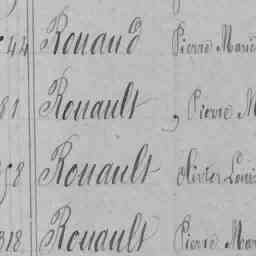 44 Rouaud Pierre Marie
81 Rouault, Pierre M
98 Rouault Olivier Louis
318 Rouault Pierre Mar